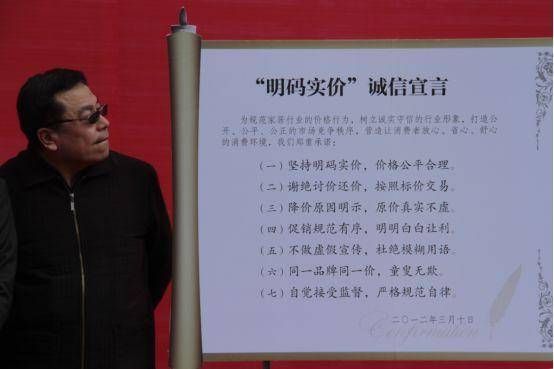 “明码实价”诚信宣言
为规范家居行业的价格行为，树立诚实守信的行业形象，打造公
开、公平、公正的市场竞争秩序，营造让消费者放心、省心、舒心
的消费环境，我们郑重承诺：
（一）坚持明码实价，价格公平合理。
（二）谢绝讨价还价，按照标价交易。
（三）降价原因明示，原价真实不虚。
（四）促销规范有序，明明白白让利。
（五）不做虚假宣传，杜绝模糊用语。
（六）同一品牌同一价，童叟无欺。
（七）自觉接受监督，严格规范自律。
二〇一二年三月十日
Confirmation